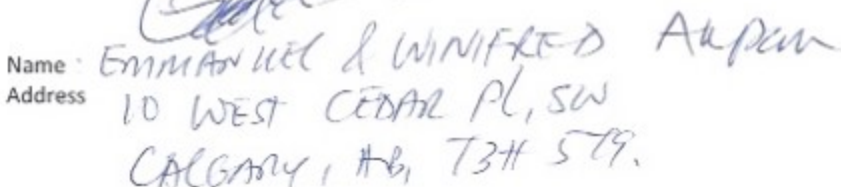 Name : EMMANUEL & WINIFRED Akpan
Address 10 WEST CEDAR Pl, SW
CALGARY, AB, T3H 5T9.